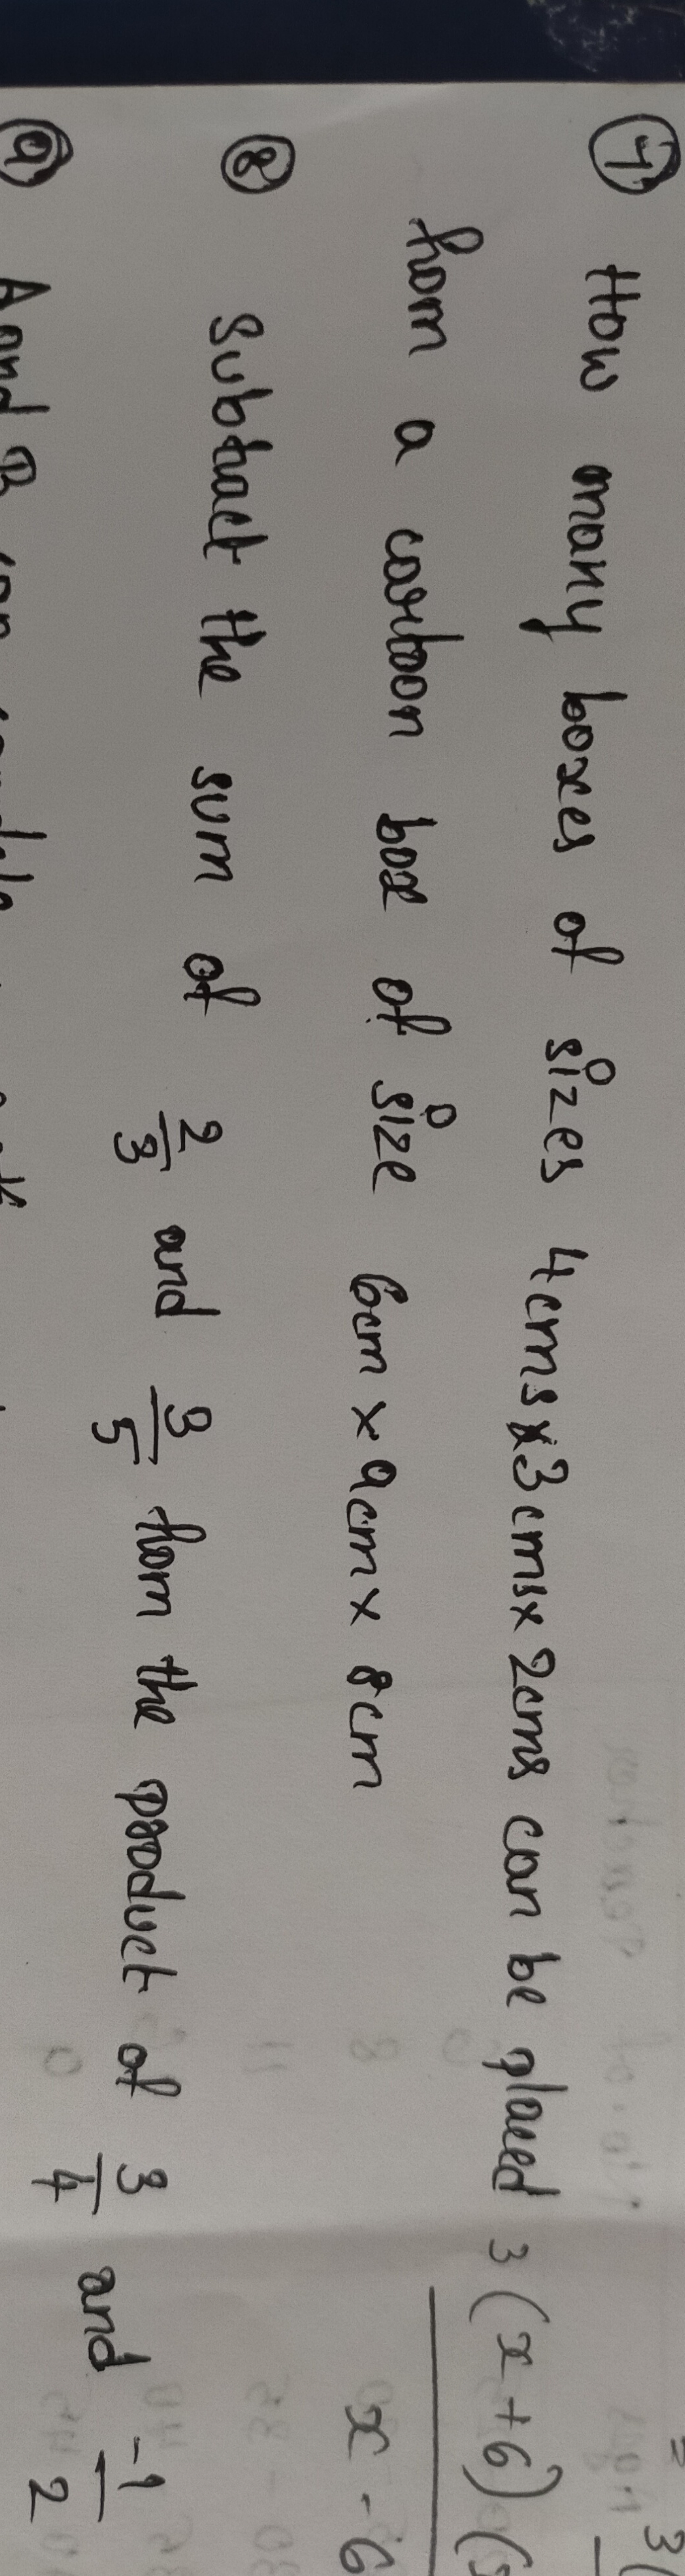 ⑦ How many boxes of sizes 4cms x 3cms x 2cms can be placed
from a cartoon box of size 6cm x 9cm x 8cm
⑧ Subtract the sum of 2/3 and 3/5 from the product of 3/4 and -1/2
⑨ A and B can
= 3(
3(x+6)(
x-6